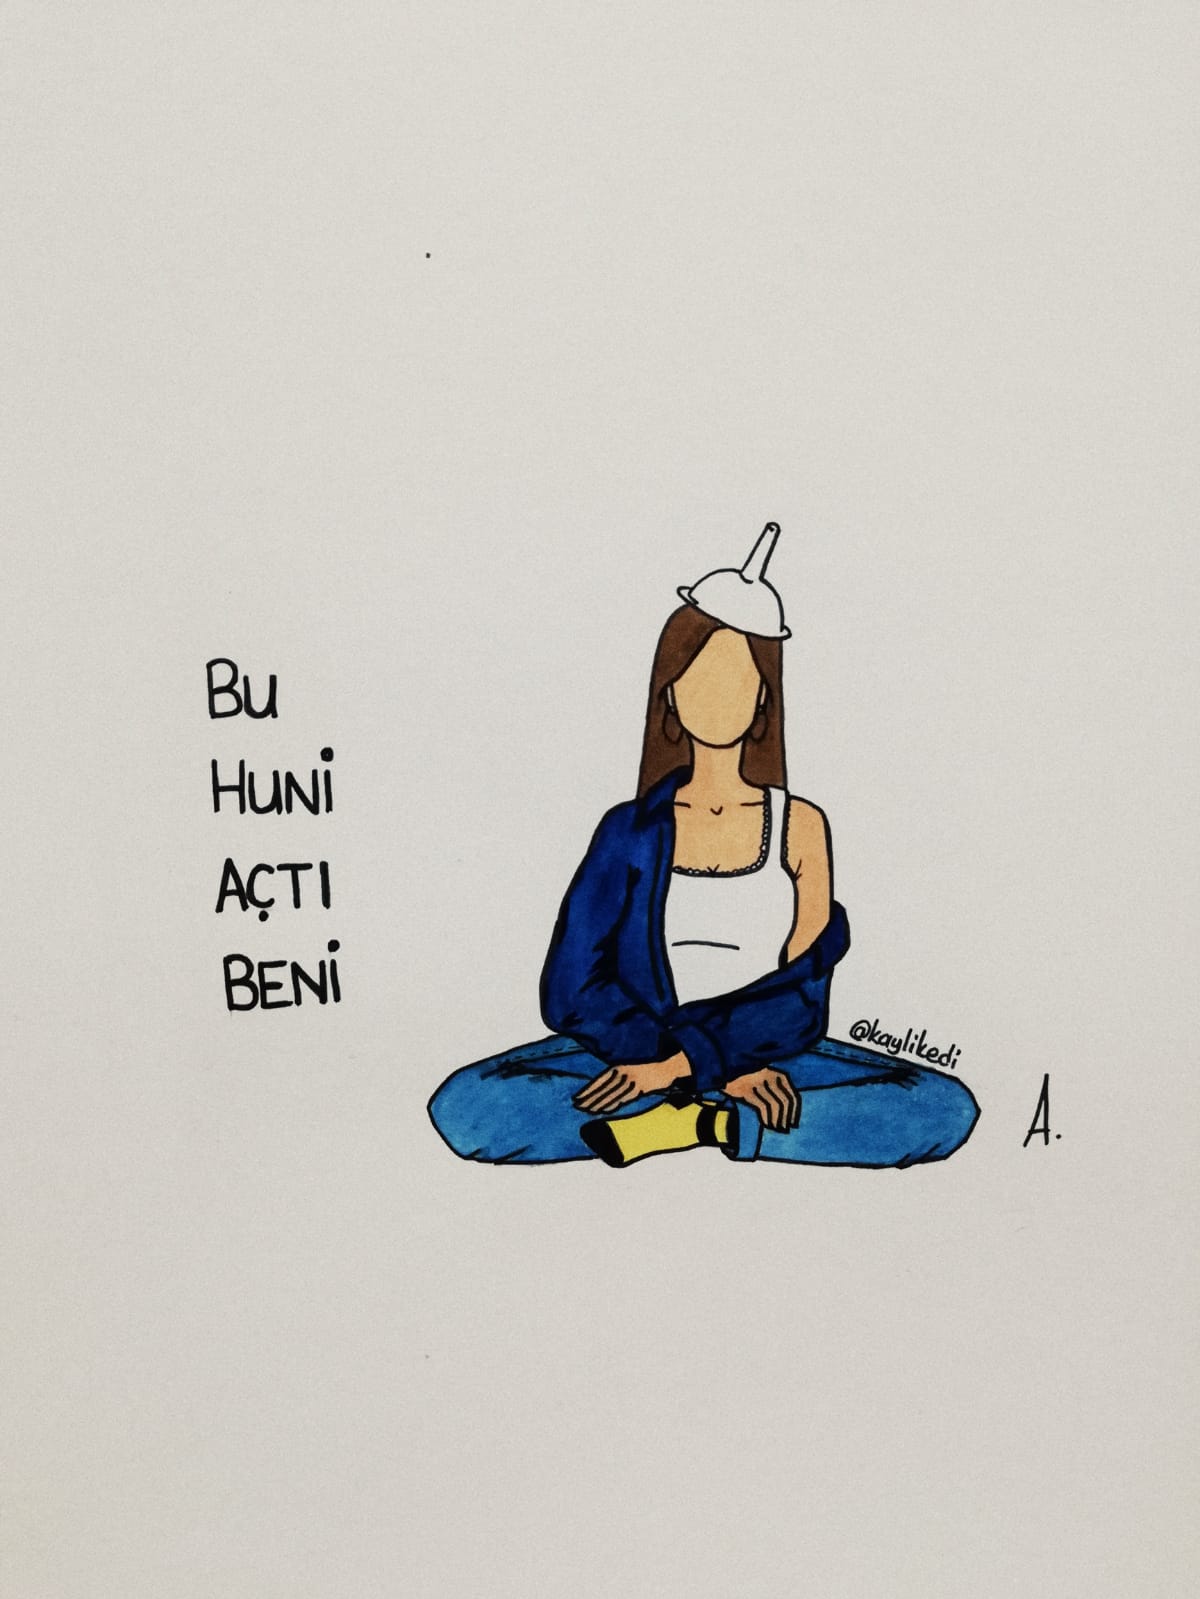 Bu
HUNİ
AÇTI
BENİ
@kaylikedi
A.